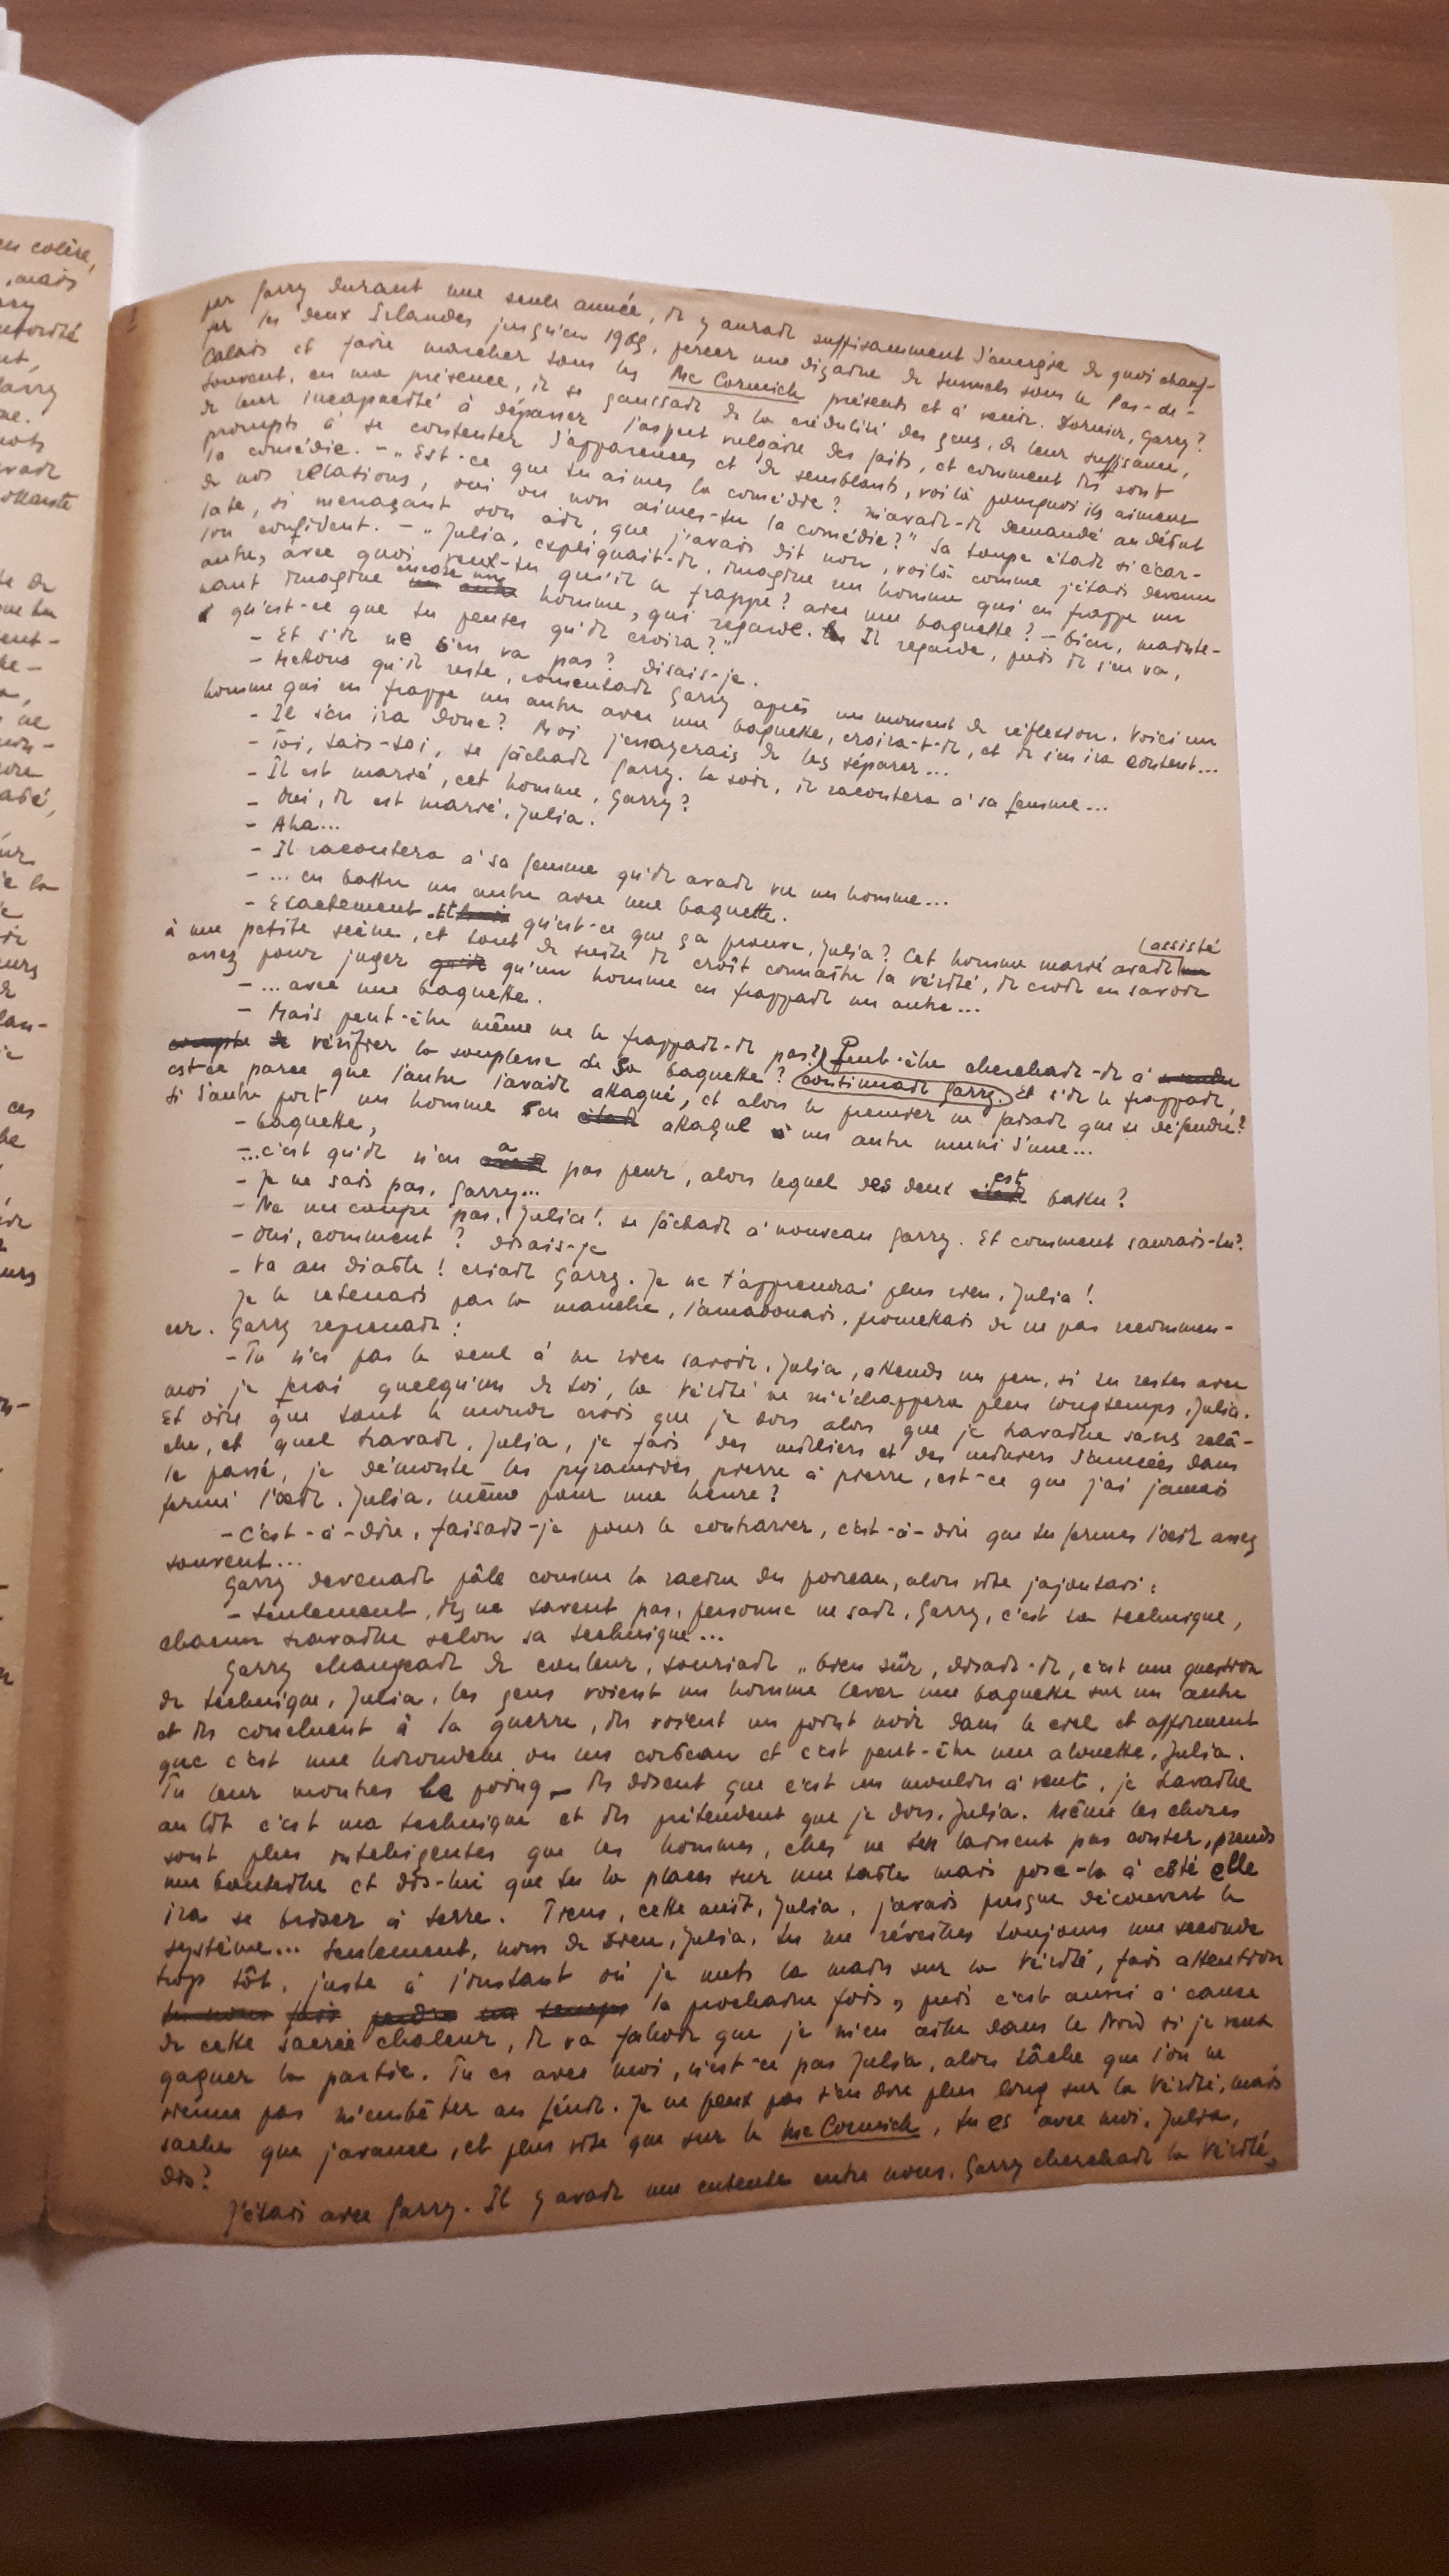 en colère,
, mais
par Garry durant une seule année, il y aurait suffisamment d'énergie de quoi chauf-
fer les deux Irlandes jusqu'en 1989, percer une dizaine de tunnels sous le Pas-de-
Calais et faire marcher tous les Mc Cormick présents et à venir. Dormir, Garry?
Souvent, en ma présence, il se gaussait de la crédulité des gens, de leur suffisance,
de leur incapacité à dépasser l'aspect vulgaire des faits, et comment ils sont
prompts à se contenter d'apparences et de semblants, voilà pourquoi ils aiment
la comédie. – „Est-ce que tu aimes la comédie? m'avait-il demandé au début
de nos relations, oui ou non aimes-tu la comédie?" Sa loupe était si écar-
late, si menaçant son air, que j'avais dit non, voilà comme j'étais devenu
son confident. – „Julia, expliquait-il, imagine un homme qui en frappe un
autre, avec quoi veux-tu qu'il le frappe? avec une baguette? – bien, mainte-
nant imagine encore un homme, qui regarde. Il regarde, puis il s'en va,
qu'est-ce que tu penses qu'il croira?"
– Et s'il ne s'en va pas? disais-je.
– Mettons qu'il reste, consentait Garry après un moment de réflexion. Voici un
homme qui en frappe un autre avec une baguette, croira-t-il, et il s'en ira content...
– Il s'en ira donc? Moi j'essayerais de les séparer...
– Toi, tais-toi, se fâchait Garry. Le soir, il racontera à sa femme...
– Il est marié, cet homme, Garry?
– Oui, il est marié, Julia.
– Aha...
– Il racontera à sa femme qu'il avait vu un homme...
– ... en battre un autre avec une baguette.
– Exactement. Et qu'est-ce que ça prouve, Julia? Cet homme marié avait assisté
à une petite scène, et tout de suite il croit connaître la vérité, il croit en savoir
assez pour juger qu'un homme en frappait un autre...
– ... avec une baguette.
– Mais peut-être même ne le frappait-il pas? Peut-être cherchait-il à
vérifier la souplesse de sa baguette? continuait Garry. Et s'il le frappait,
est-ce parce que l'autre l'avait attaqué, et alors le premier ne faisait que se défendre?
Si d'autre part un homme s'en attaque à un autre muni d'une...
– baguette,
–...c'est qu'il n'en a pas peur, alors lequel des deux est battu?
– Je ne sais pas, Garry...
– Ne me coupe pas, Julia! se fâchait à nouveau Garry. Et comment saurais-tu?
– Oui, comment? disais-je
– Va au diable! criait Garry. Je ne t'apprendrai plus rien, Julia!
Je le retenais par la manche, l'amadouais, promettais de ne pas recommen-
cer. Garry reprenait:
– Tu n'es pas le seul à ne rien savoir, Julia, attends un peu, si tu restes avec
moi je ferai quelqu'un de toi, la Vérité ne m'échappera plus longtemps, Julia.
Et dire que tout le monde croit que je dors alors que je travaille sans relâ-
che, et quel travail, Julia, je fais des milliers et des milliers d'années dans
le passé, je démonte les pyramides pierre à pierre, est-ce que j'ai jamais
fermé l'œil, Julia, même pour une heure?
– C'est-à-dire, faisais-je pour le contrarier, c'est-à-dire que tu fermes l'œil assez
souvent...
Garry devenait pâle comme la racine du poireau, alors vite j'ajoutais:
– Seulement, ils ne savent pas, personne ne sait, Garry, c'est ta technique,
chacun travaille selon sa technique...
Garry changeait de couleur, souriait „bien sûr, disait-il, c'est une question
de technique, Julia, les gens voient un homme lever une baguette sur un autre
et ils concluent à la guerre, ils voient un point noir dans le ciel et affirment
que c'est une hirondelle ou un corbeau et c'est peut-être une alouette, Julia.
Tu leur montres le poing – ils disent que c'est un moulin à vent, je travaille
au lit c'est ma technique et ils prétendent que je dors, Julia. Même les choses
sont plus intelligentes que les hommes, elles ne s'en laissent pas conter, prends
une bouteille et dis-lui que tu la places sur une table mais pose-la à côté elle
ira se briser à terre. Tiens, cette nuit, Julia, j'avais presque découvert le
système... seulement, nom de Dieu, Julia, tu me réveilles toujours une seconde
trop tôt, juste à l'instant où je mets la main sur la Vérité, fais attention
la prochaine fois, puis c'est aussi à cause
de cette sacrée chaleur, il va falloir que je m'en aille dans le Nord si je veux
gagner la partie. Tu es avec moi, n'est-ce pas Julia, alors tâche que l'on ne
vienne pas m'embêter au fénil. Je ne peux pas t'en dire plus long sur la Vérité, mais
sache que j'avance, et plus vite que sur le Mc Cormick, tu es avec moi, Julia,
dis?
J'étais avec Garry. Il y avait une entente entre nous. Garry cherchait la Vérité,